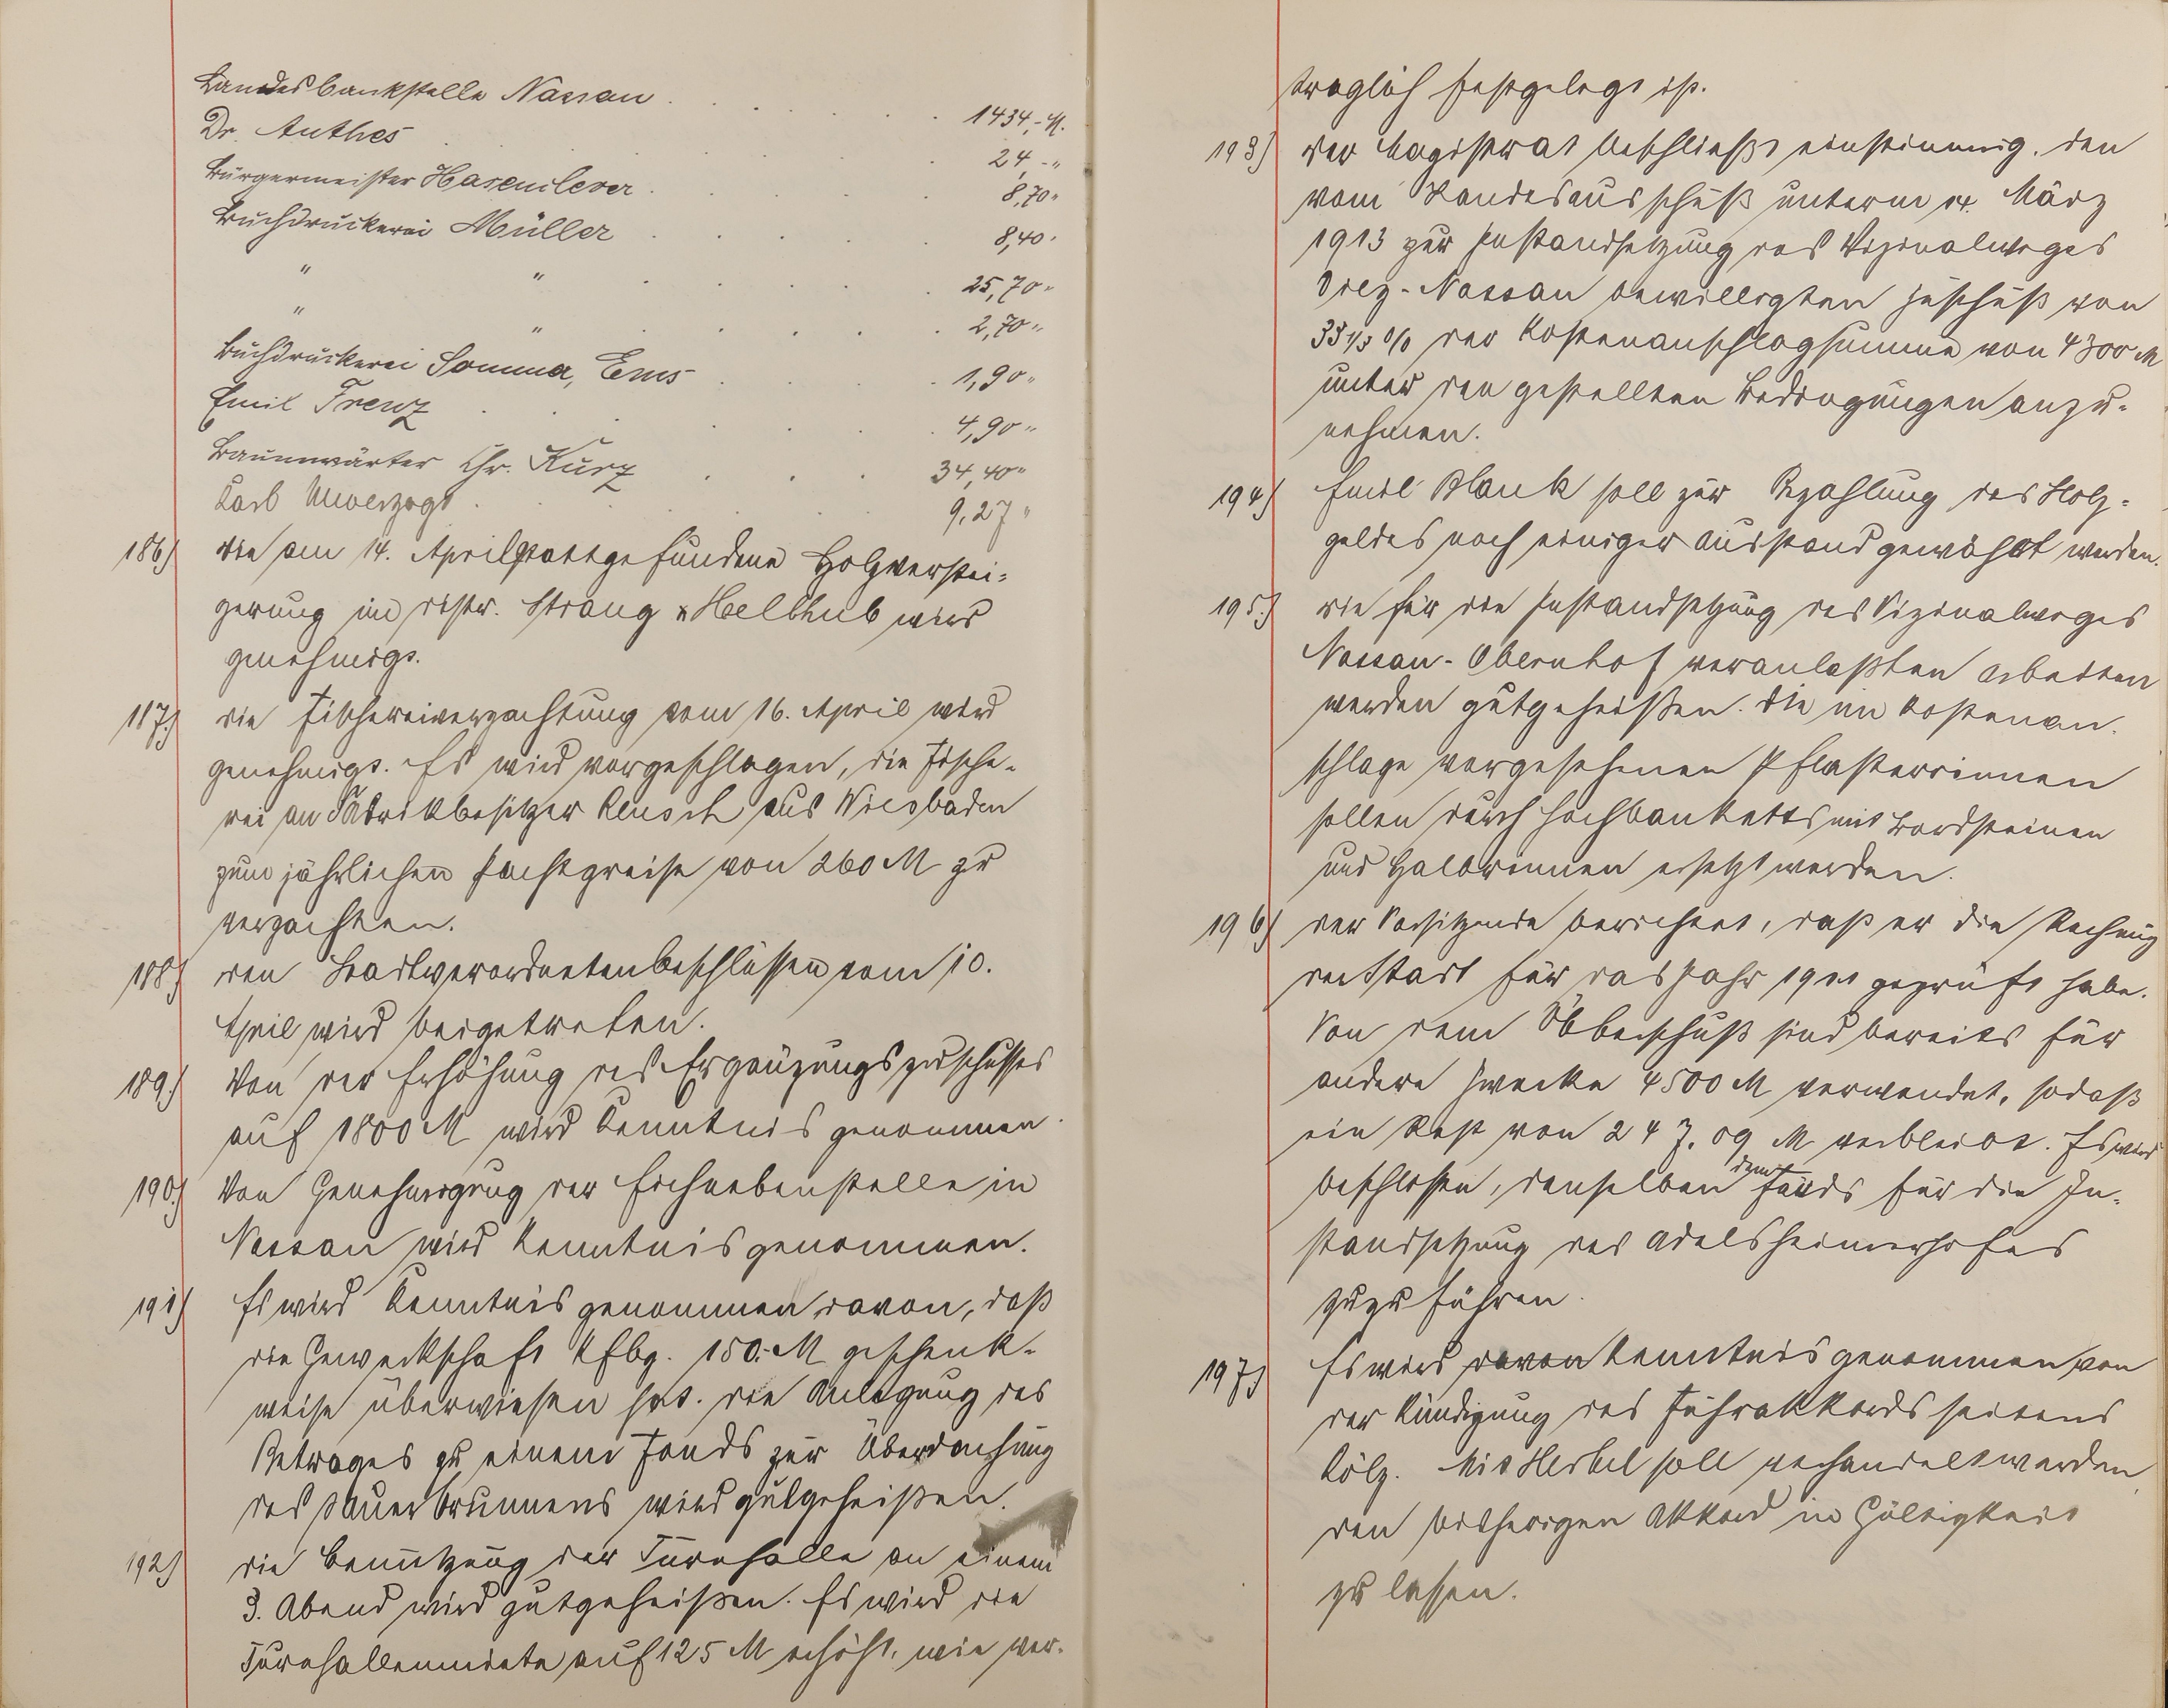 Landesbankstelle Nassau . . . . . 1434,- M.
Dr. Anthes . . . . . 24,- "
Bürgermeister Hasenclever . . . . 8,70 "
Buchdruckerei Müller . . . . . 8,40 "
" " . . . . . 25,70 "
" " . . . . . 2,70 "
Buchdruckerei Sommer, Ems . . . . 1,90 "
Emil Trenz . . . . . 4,90 "
Baumwärter Chr. Kurz . . . . 34,40 "
Karl Unverzagt . . . . . 9,27 "
186) Die am 14. April stattgefundene Holzverstei-
gerung im Distr. Strang u. Helthub wird
genehmigt.
187.) Die Fischereiverpachtung vom 16. April wird
genehmigt. Es wird vorgeschlagen, die Fische-
rei an Fabrikbesitzer Reusch aus Wiesbaden
zum jährlichen Pachtpreise von 260 M zu
verpachten.
188) Den Stadtverordnetenbeschlüssen vom 10.
April wird beigetreten.
189.) Von der Erhöhung des Ergänzungszuschusses
auf 1800 M wird Kenntnis genommen.
190.) Von Genehmigung der Eichnebenstelle in
Nassau wird Kenntnis genommen.
191) Es wird Kenntnis genommen davon, daß
die Gewerkschaft Kfbg. 150.- M geschenk-
weise überwiesen hat. Die Anlegung des
Betrages zu einem Fonds zur Überdachung
des Sauerbrunnens wird gutgeheißen.
192) Die Benutzung der Turnhalle an einem
3. Abend wird gutgeheißen. Es wird die
Turnhallenmiete auf 125 M erhöht, wie ver-
traglich festgelegt ist.
193) Der Magistrat beschließt einstimmig, den
vom Landesausschuß unterm 14. März
1913 zur Instandsetzung des Vizinalweges
Diez-Nassau bewilligten Zuschuß von
33 1/3 % der Kostenanschlagsumme von 4300 M
unter den gestellten Bedingungen anzu-
nehmen.
194) Emil Blank soll zur Bezahlung des Holz-
geldes noch einiger Ausstand gewährt werden.
195.) Die für die Instandsetzung des Vizinalweges
Nassau-Obernhof veranlaßten Arbeiten
werden gutgeheißen. Die im Kostenan-
schlage vorgesehenen Pflasterrinnen
sollen durch Hochbanketts mit Bordsteinen
und Halbrinnen ersetzt werden.
196) Der Vorsitzende berichtet, daß er die Rechnung
der Stadt für das Jahr 1911 geprüft habe.
Von dem Überschuß sind bereits für
andere Zwecke 4500 M verwendet, sodaß
ein Rest von 247.09 M verbleibt. Es wird
beschlossen, denselben dem Fonds für die In-
standsetzung des Adelsheimerhofes
zuzuführen.
197) Es wird davon Kenntnis genommen von
der Kündigung des Fuhrakkords seitens
Kölz. Mit Herbel soll verhandelt werden,
den bisherigen Akkord in Gültigkeit
zu lassen.